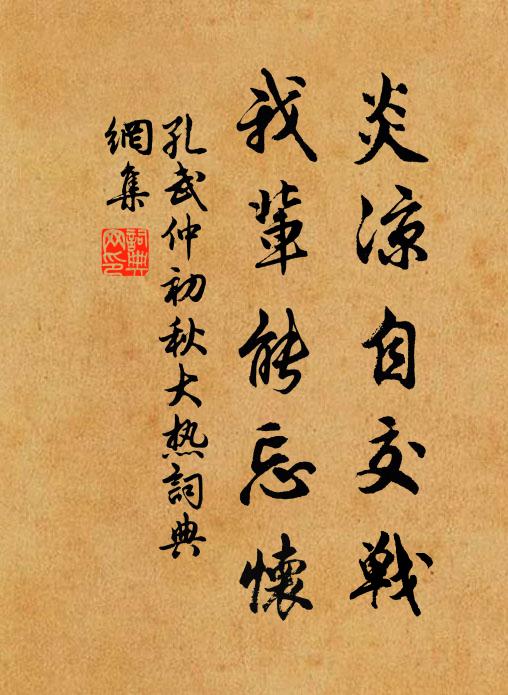 炎涼自交戰
我輩能忘懷
孔武仲初秋大热詞典
網集
詞典
网印